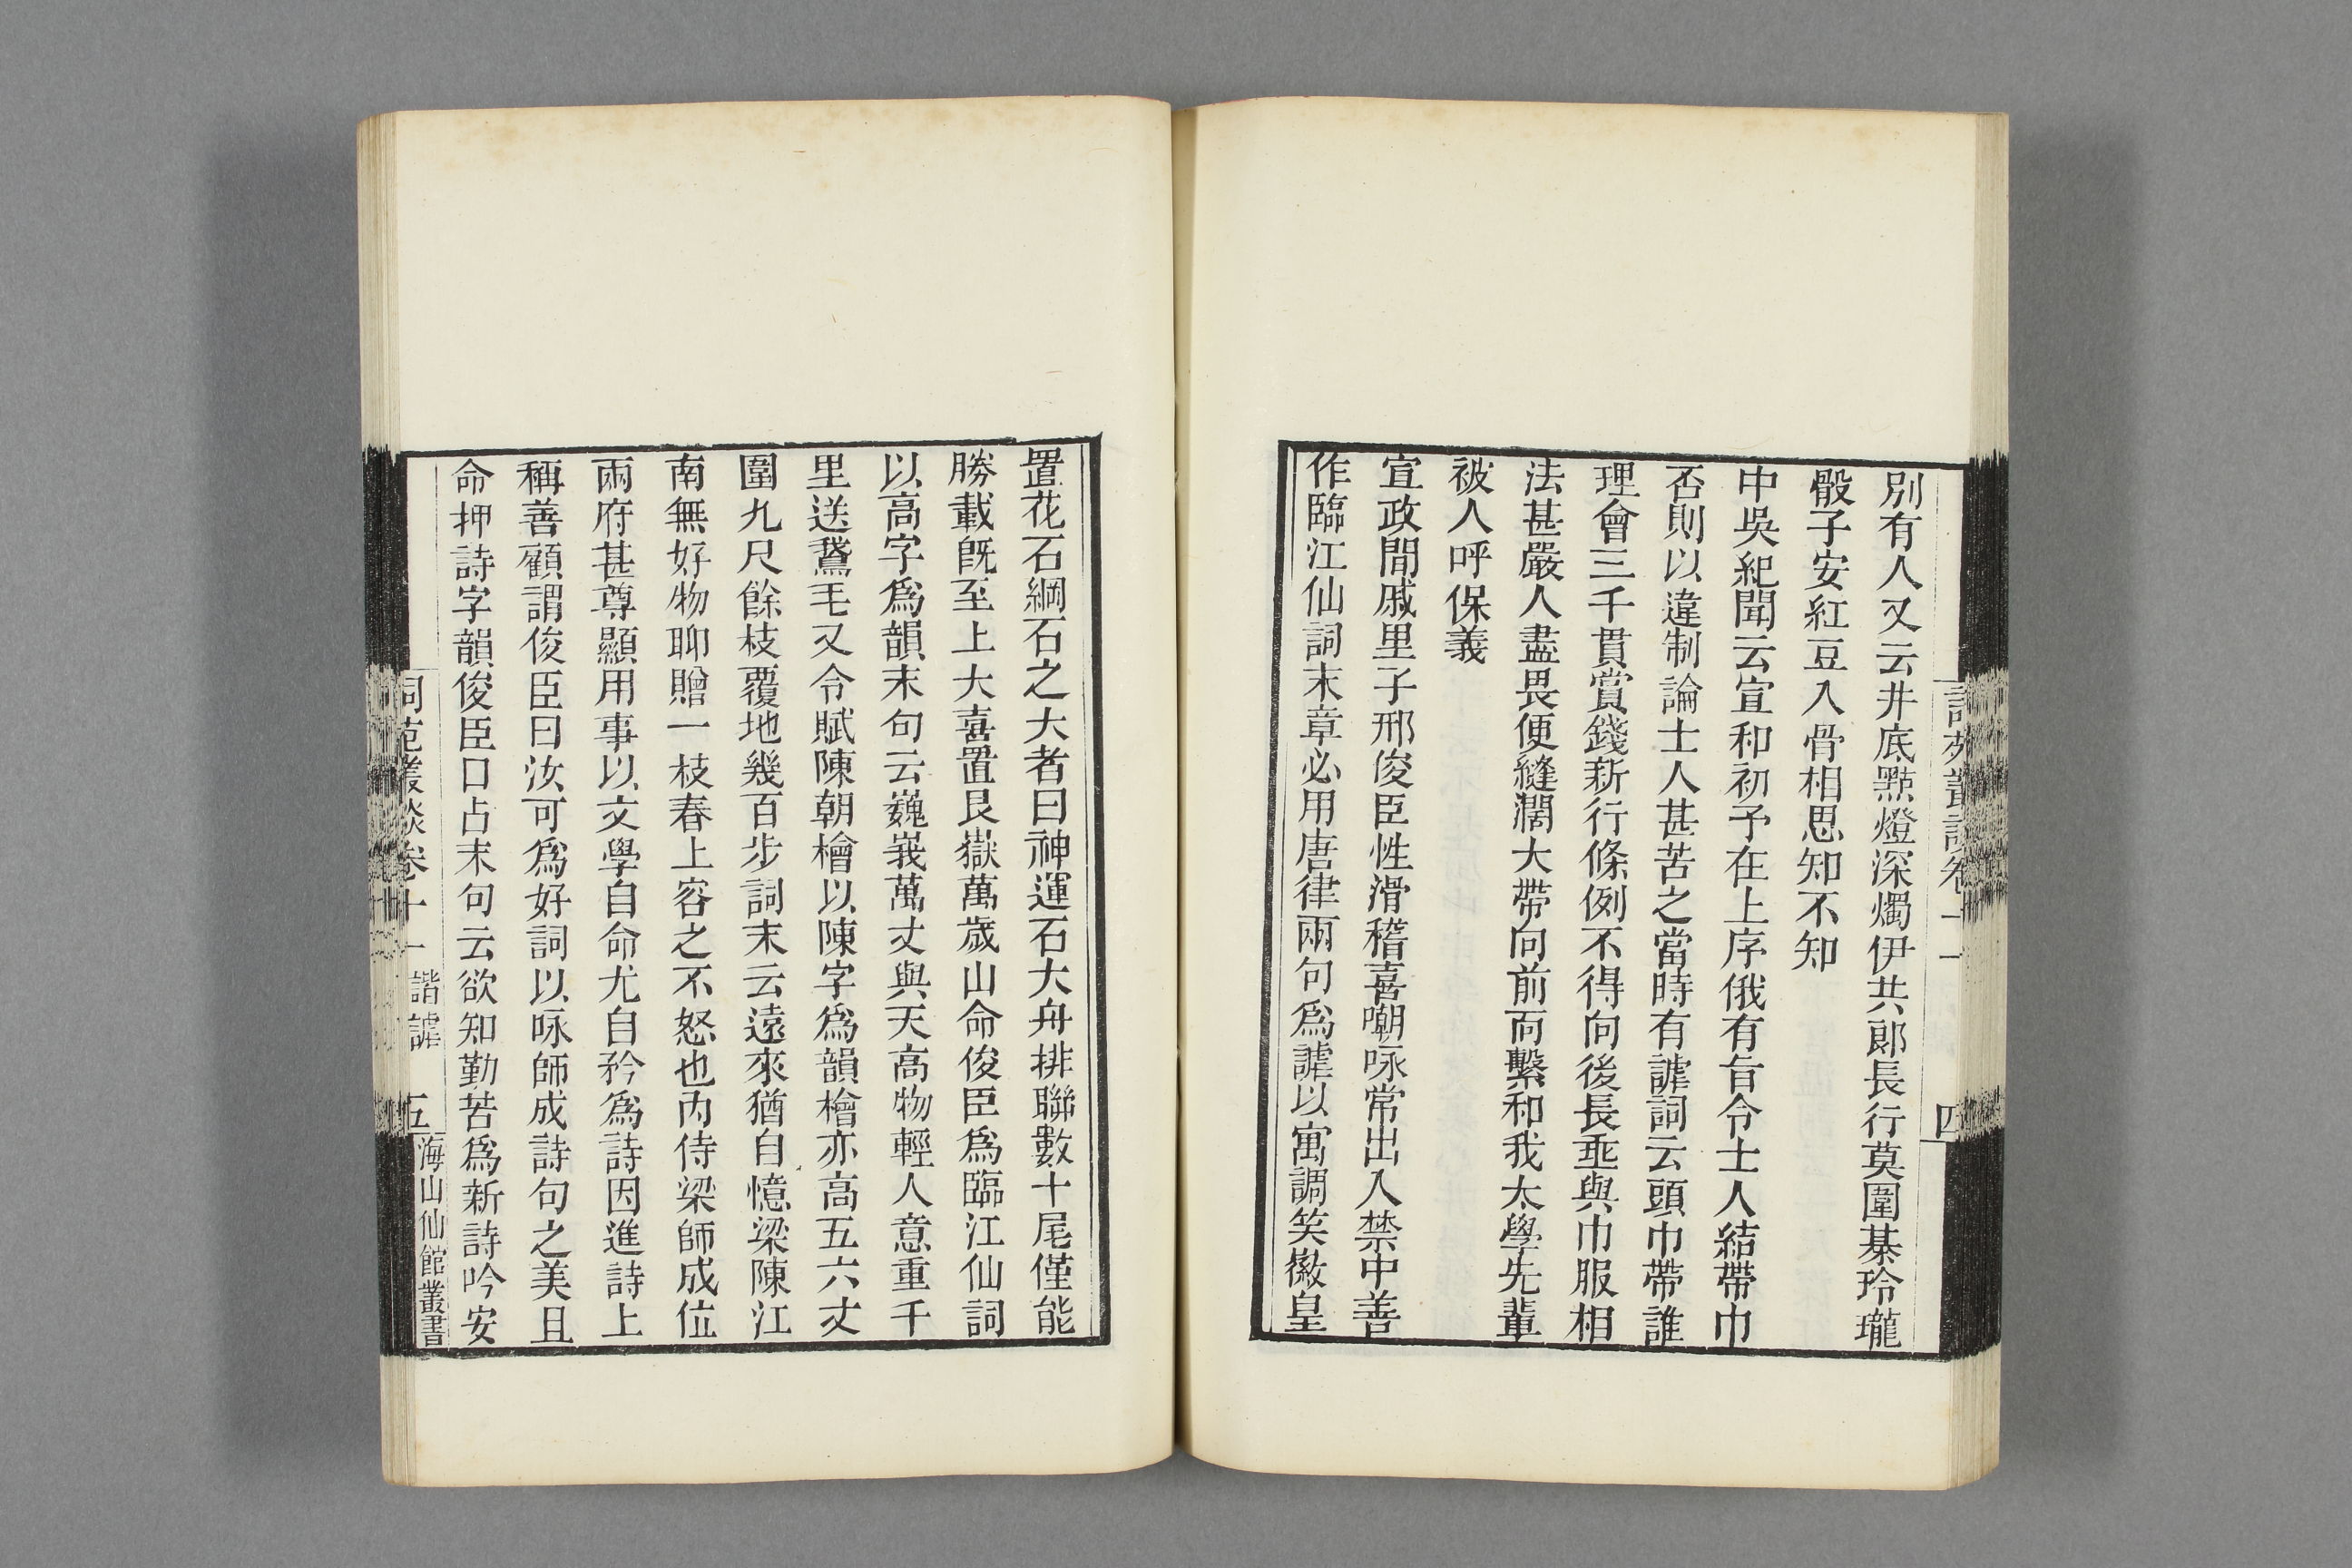 別有人又云井底點燈深燭伊共郞長行莫圍棊玲瓏
骰子安紅豆入骨相思知不知
中吳紀聞云宣和初予在上庠俄有旨令士人結帶巾
否則以違制論士人甚苦之當時有謔詞云頭巾帶誰
理會三千貫賞錢新行條例不得向後長垂與巾服相
法甚嚴人盡畏便縫濶大帶向前面繫和我太學先輩
被人呼保義
宣政間戚里子邢俊臣性滑稽喜嘲咏常出入禁中善
作臨江仙詞末章必用唐律兩句爲謔以寓調笑徽皇
置花石綱石之大者曰神運石大舟排聯數十尾僅能
勝載旣至上大喜置艮嶽萬歲山命俊臣爲臨江仙詞
以高字爲韻末句云巍峩萬丈與天高物輕人意重千
里送鵞毛又令賦陳朝檜以陳字爲韻檜亦高五六丈
圍九尺餘枝覆地幾百步詞末云遠來猶自憶梁陳江
南無好物聊贈一枝春上容之不怒也內侍梁師成位
兩府甚尊顯用事以文學自命尤自矜爲詩因進詩上
稱善顧謂俊臣曰汝可爲好詞以咏師成詩句之美且
命押詩字韻俊臣口占末句云欲知勤苦爲新詩吟安
詞苑叢談卷十一 諧謔 五 海山仙館叢書